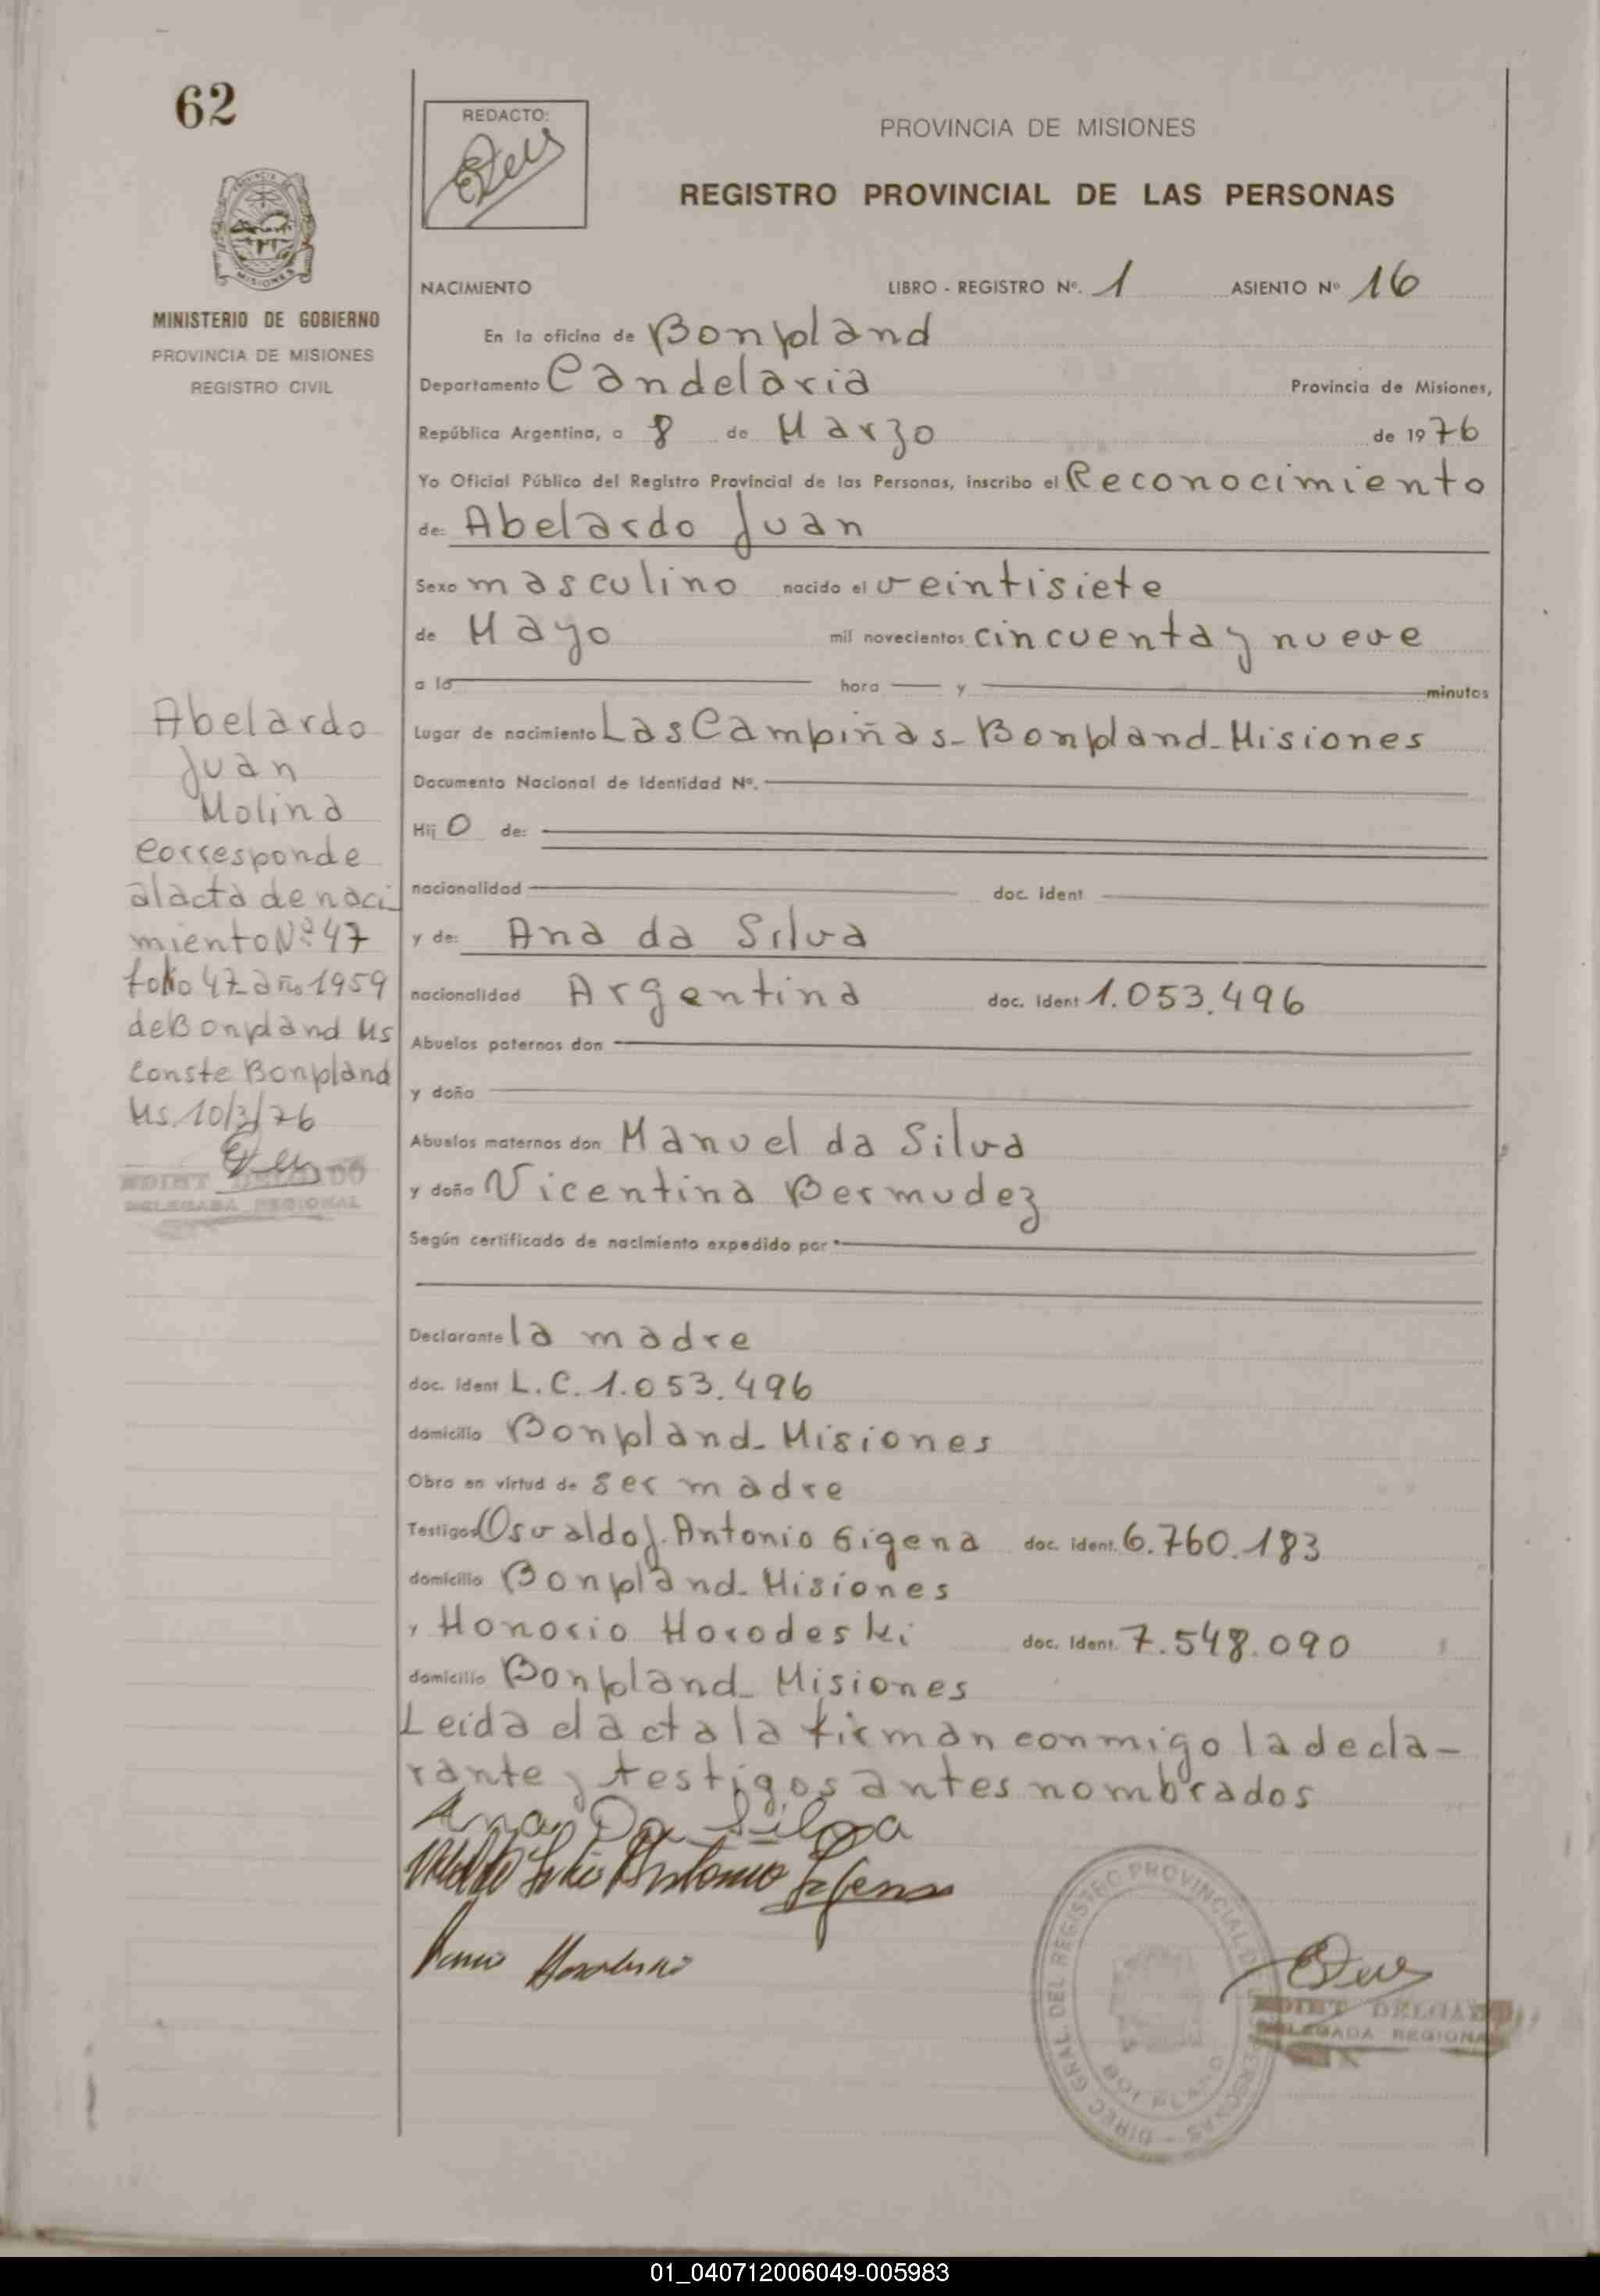 62
REDACTO:
PROVINCIA DE MISIONES
REGISTRO PROVINCIAL DE LAS PERSONAS
MINISTERIO DE GOBIERNO
PROVINCIA DE MISIONES
REGISTRO CIVIL
NACIMIENTO LIBRO - REGISTRO Nº. 1 ASIENTO Nº 16
En la oficina de Bonpland
Departamento Candelaria Provincia de Misiones,
República Argentina, a 8 de Marzo de 1976
Yo Oficial Público del Registro Provincial de las Personas, inscribo el Reconocimiento
de: Abelardo Juan
Sexo masculino nacido el veintisiete
de Mayo mil novecientos cincuenta y nueve
a la hora y minutos
Lugar de nacimiento Las Campiñas - Bonpland - Misiones
Documento Nacional de Identidad Nº.
Hijo de:
nacionalidad doc. ident
y de: Ana da Silva
nacionalidad Argentina doc. ident 1.053.496
Abuelos paternos don
y doña
Abuelos maternos don Manuel da Silva
y doña Vicentina Bermudez
Según certificado de nacimiento expedido por
Declarante la madre
doc. ident L.C. 1.053.496
domicilio Bonpland - Misiones
Obra en virtud de ser madre
Testigos Osvaldo J. Antonio Gigena doc. ident. 6.760.183
domicilio Bonpland - Misiones
y Honorio Horodeski doc. ident. 7.548.090
domicilio Bonpland - Misiones
Leida el acta la firman conmigo la decla-
rante y testigos antes nombrados
Ana Da Silva
Abelardo
Juan
Molina
Corresponde
al acta de naci
miento Nº 47
folio 47 año 1959
de Bonpland Ms
Conste Bonpland
Ms. 10/3/76
DELGADO
DELEGADA REGIONAL
DIREC. GRAL. DEL REGISTRO PROVINCIAL DE PERSONAS
BONPLAND
DELGADO
DELEGADA REGIONAL
01_040712006049-005983